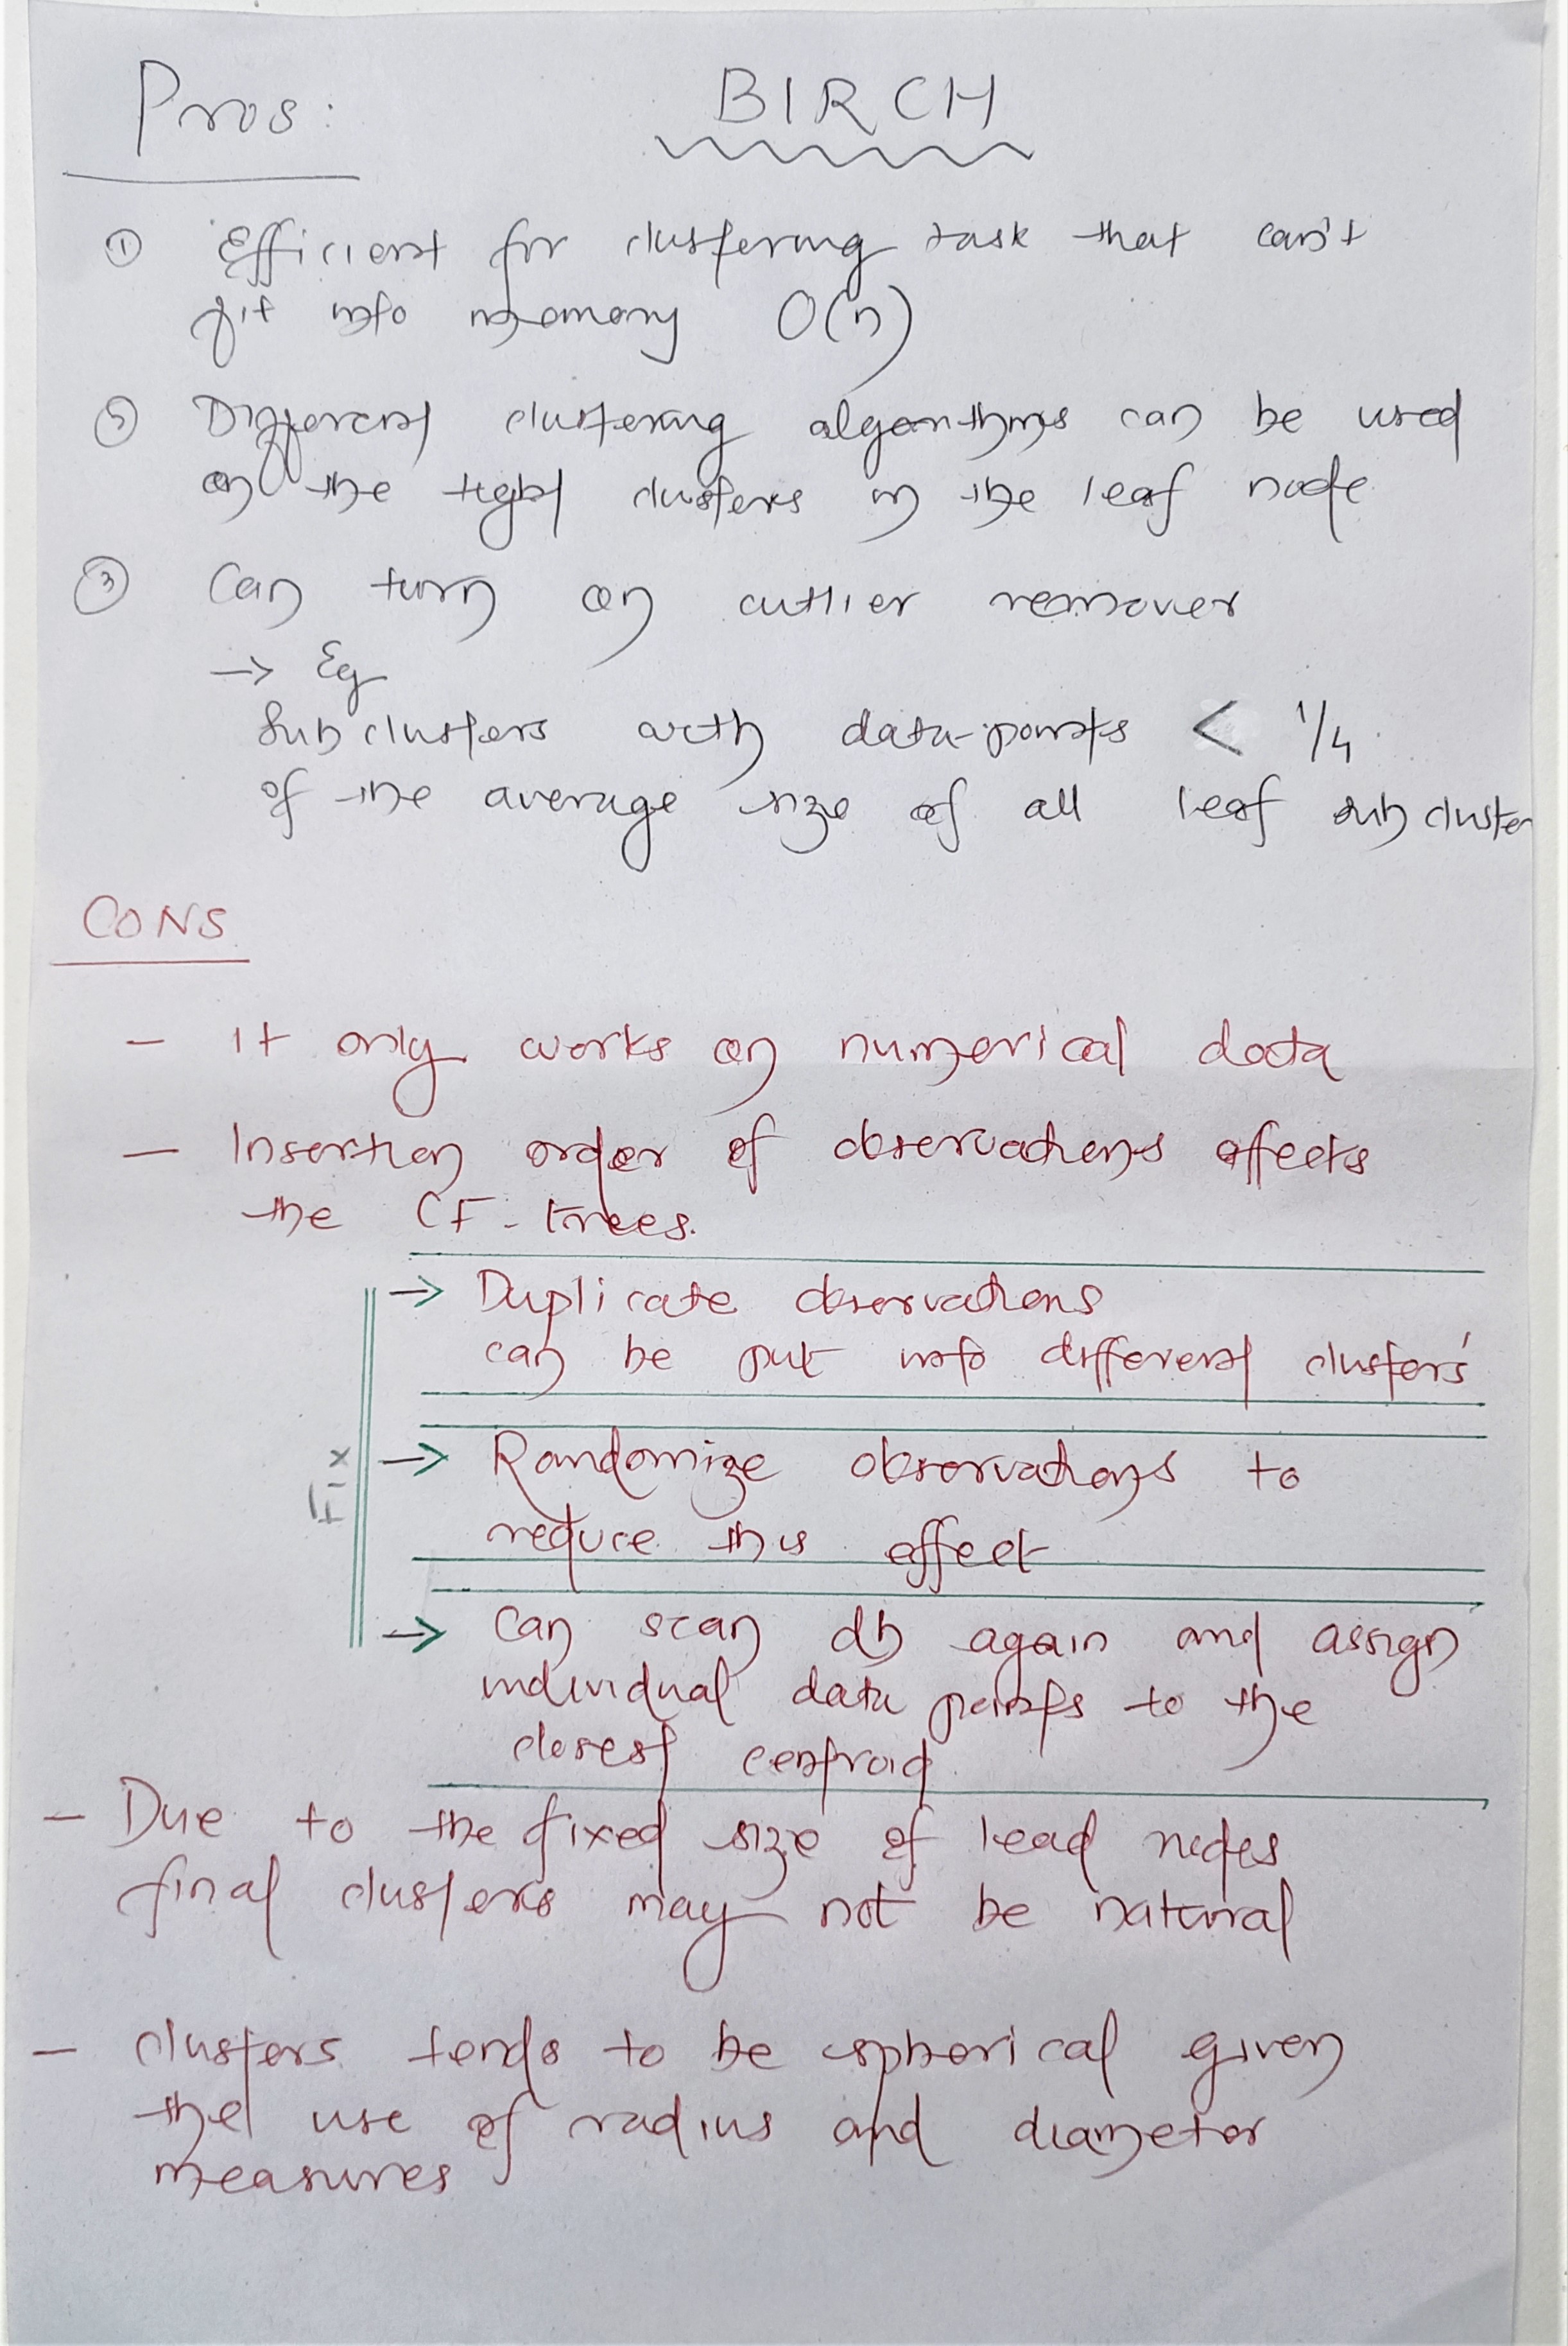 BIRCH
Pros:
① Efficient for clustering task that can't
fit into memory O(n)
② Different clustering algorithms can be used
on the tight clusters in the leaf node
③ Can turn on outlier remover
→ Eg
Sub clusters with data-points < 1/4
of the average size of all leaf sub cluster
CONS
- it only works on numerical data
- Insertion order of observations affects
the CF-trees.
Fix
→ Duplicate observations
can be put into different clusters'
→ Randomize observations to
reduce this effect
→ Can scan db again and assign
individual data points to the
closest centroid
- Due to the fixed size of lead nodes
final clusters may not be natural
- clusters tends to be spherical given
the use of radius and diameter
measures